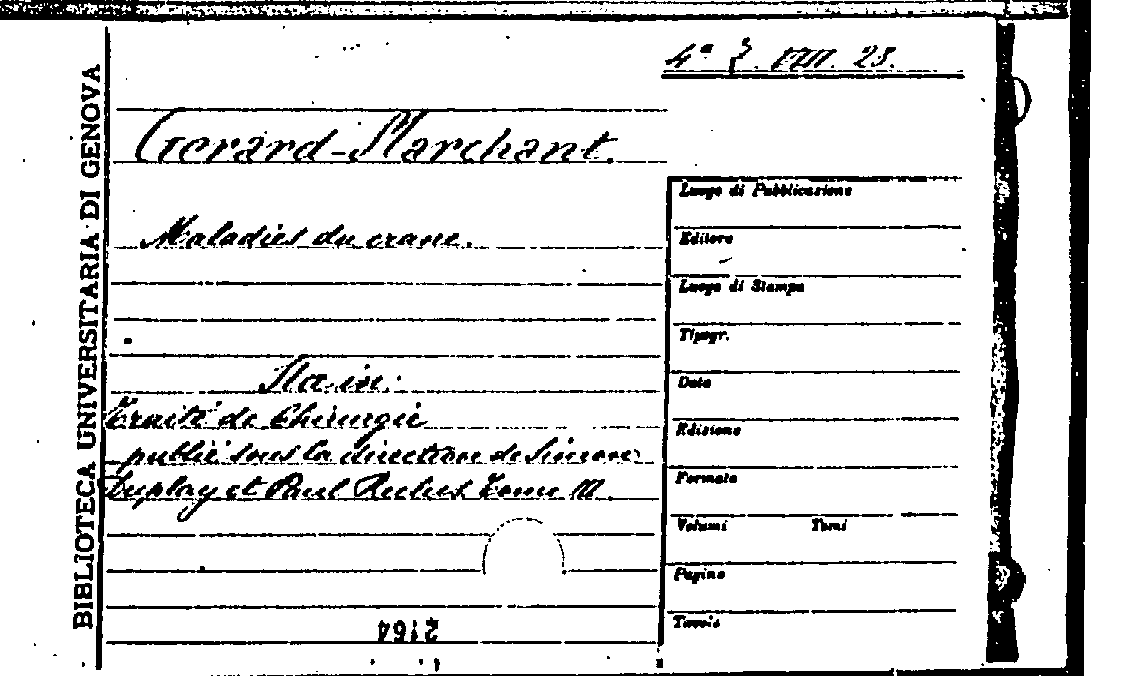 4ª Z. VIII. 23.
BIBLIOTECA UNIVERSITARIA DI GENOVA
Gerard-Marchant.
Maladies du crane.
Sta in:
Traité de Chirurgie
publié sous la direction de Simon
Duplay et Paul Reclus. Tome III.
2164
Luogo di Pubblicazione
Editore
Luogo di Stampa
Tipogr.
Data
Edizione
Formato
Volumi Tomi
Pagine
Tavole